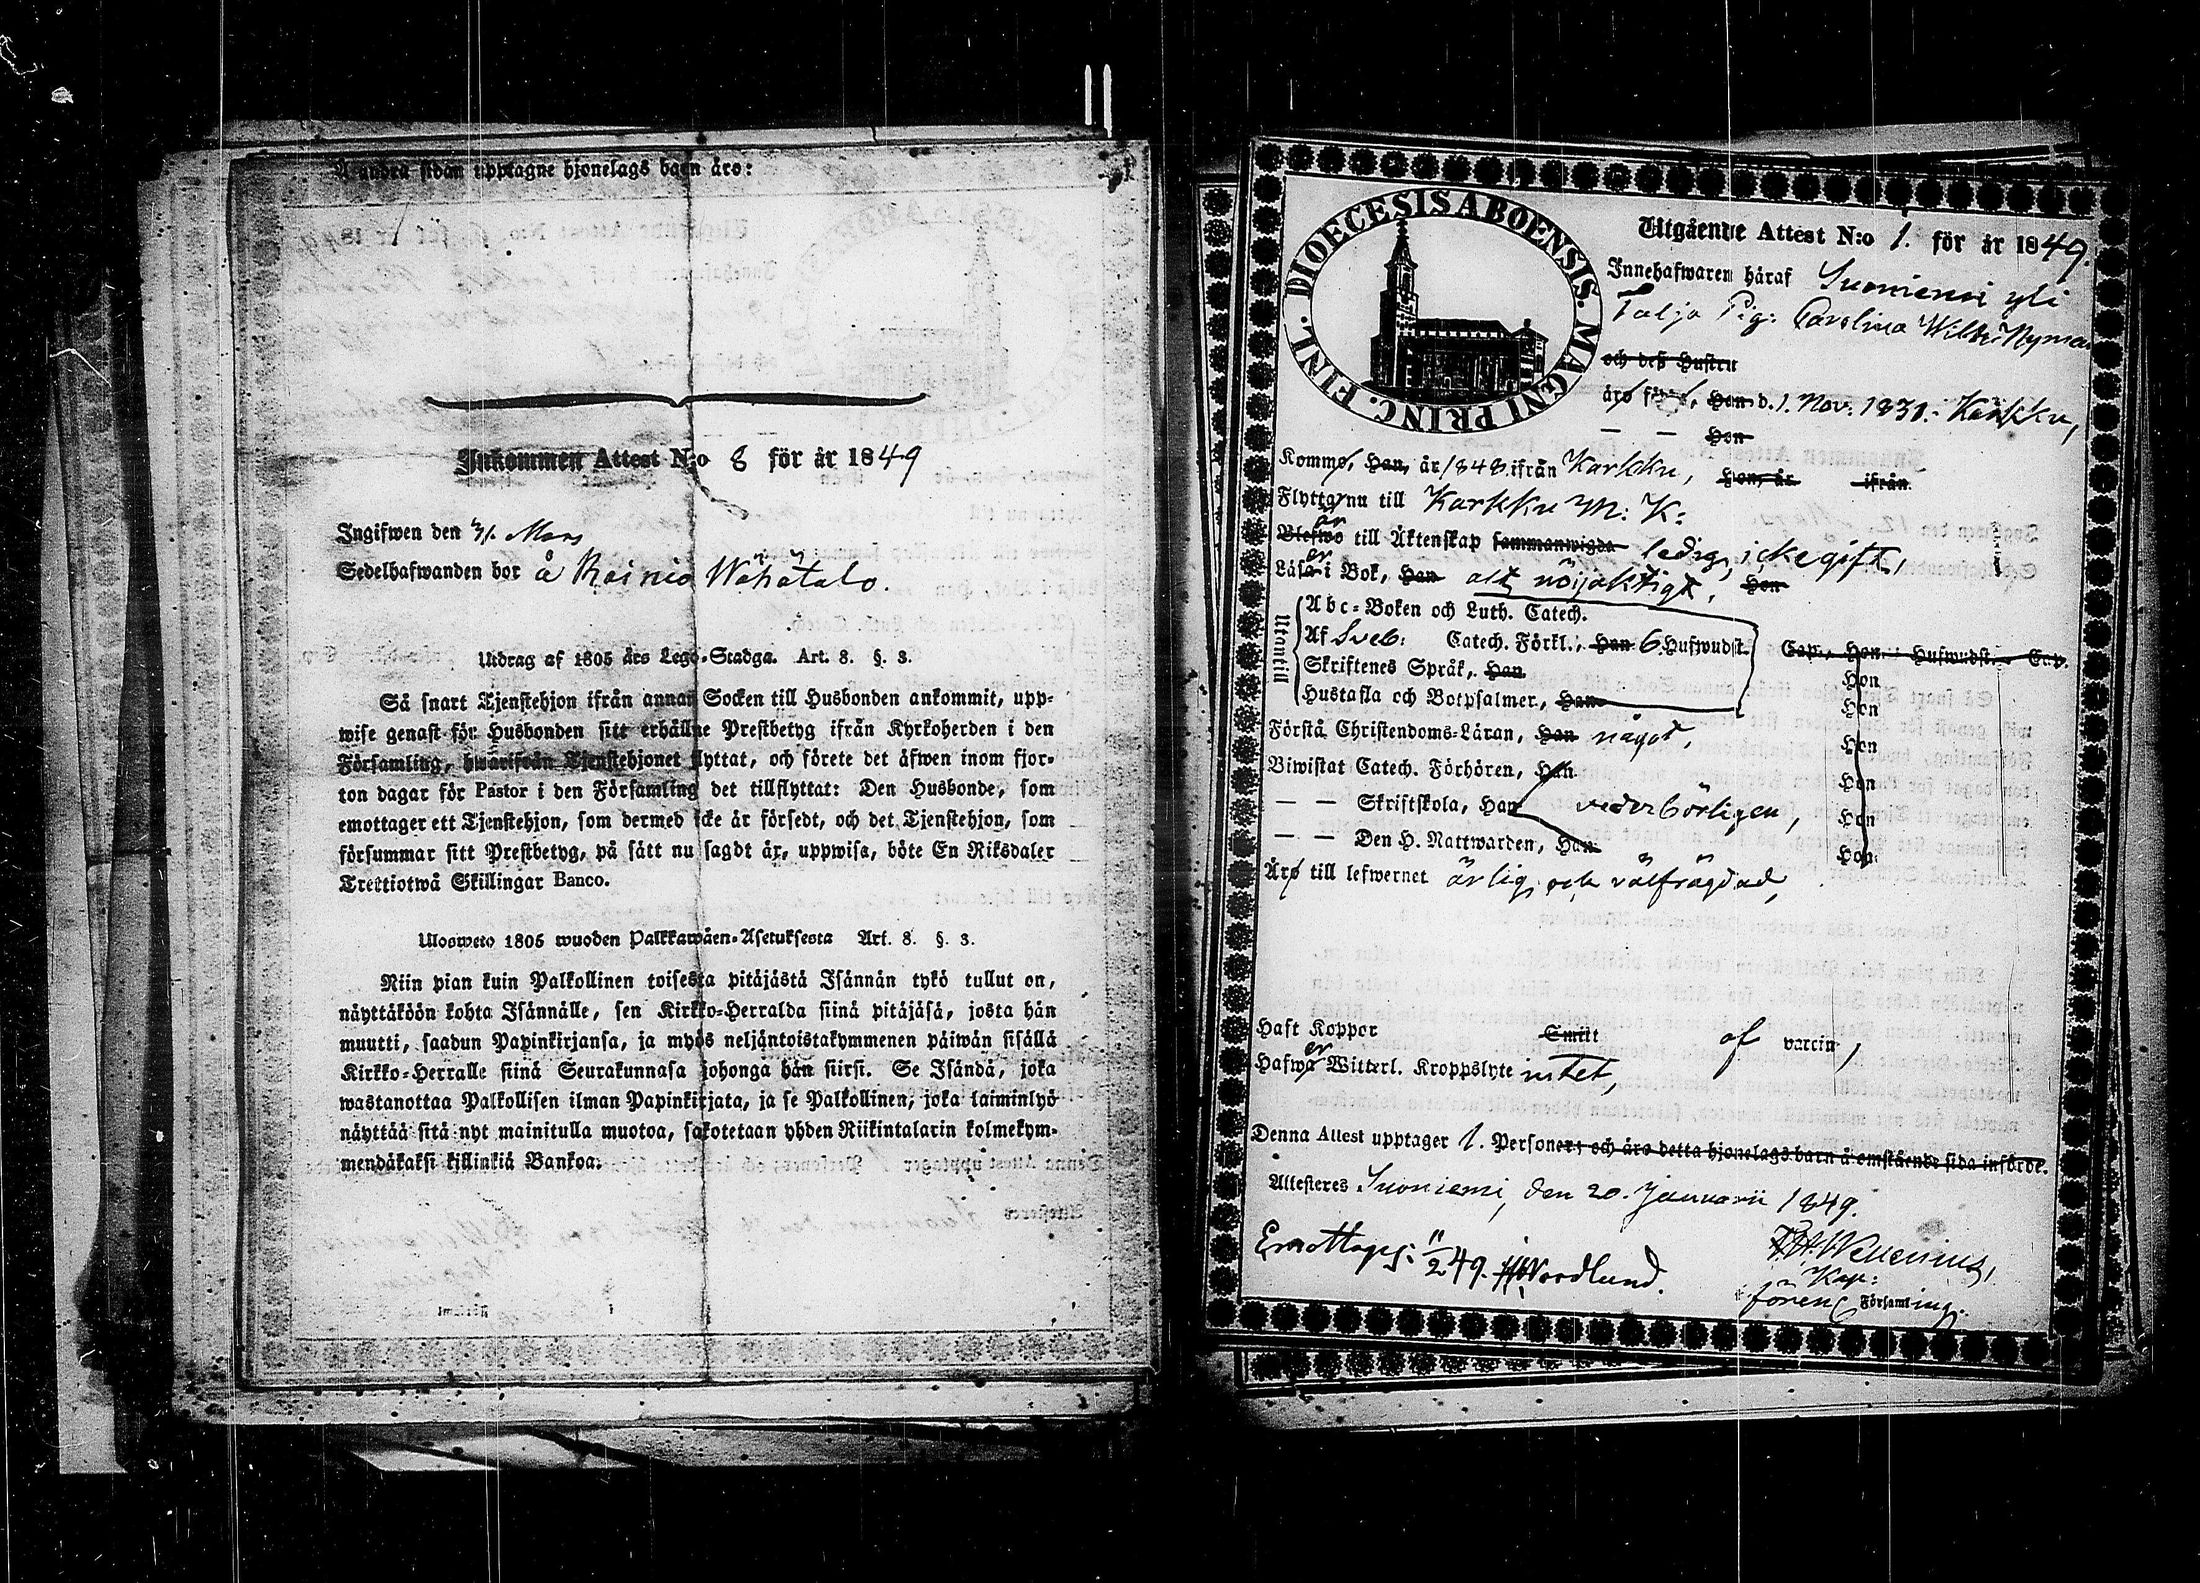 Å andra sidan upptagne hjonelags barn äro:
Inkommen Attest N:o 8 för år 1849
Ingifwen den 4/1. Mars
Sedelhafwanden bor å Rainio Wähätalo.
Utdrag af 1805 års Lego-Stadga. Art. 8. §. 3.
Så snart Tjenstehjon ifrån annan Socken till Husbonden ankommit, upp-
wise genast för Husbonden sitt erhållne Prestbetyg ifrån Kyrkoherden i den
Församling, hwarifrån Tjenstehjonet flyttat, och förete det äfwen inom fjor-
ton dagar för Pastor i den Församling det tillflyttat: Den Husbonde, som
emottager ett Tjenstehjon, som dermed icke är försedt, och det Tjenstehjon, som
försummar sitt Prestbetyg, på sätt nu sagdt är, uppwisa, böte En Riksdaler
Trettiotwå Skillingar Banco.
Ulosweto 1805 wuoden Palkkawäen-Asetuksesta Art. 8. §. 3.
Niin pian kuin Palkollinen toisesta pitäjästä Isännän tykö tullut on,
näyttäköön kohta Isännälle, sen Kirkko-Herralda siinä pitäjäsä, josta hän
muutti, saadun Papinkirjansa, ja myös neljäntoistakymmenen päiwän sisällä
Kirkko-Herralle siinä Seurakunnasa johonga hän siirsi. Se Isändä, joka
wastanottaa Palkollisen ilman Papinkirjata, ja se Palkollinen, joka laiminlyö
näyttää sitä nyt mainitulla muotoa, sakotetaan yhden Riikintalarin kolmekym-
mendäkaksi killinkiä Bankoa.
DIOECESIS ABOENSIS. MAGNI PRINC. FINL.
Utgående Attest N:o 1. för år 1849.
Innehafwaren häraf Suoniemi yli
Talja Pig: Carolina Wilh: Nyman
och deß Hustru
äro född, Han d. 1. Nov: 1831. Karkku,
— — Hon
Kommo, Han, år 1848. ifrån Karkku, Hon, år ifrån
Flytta nu till Karkku M: K:
är
Blefwo till Äktenskap sammanwigda ledig, icke gift,
er
Läsa i Bok, Han alt nöijaktigt, Hon
Utantill
Abc-Boken och Luth. Catech.
Af Sveb: Catech. Förkl., Han 6 Hufwudst. Cap., Hon Hufwudst. Cap.
Skriftenes Språk, Han Hon
Hustafla och Botpsalmer, Han Hon
Förstå Christendoms-Läran, Han något, Hon
Biwistat Catech. Förhören, Han Hon
— — Skriftskola, Han vederbörligen, Hon
— — Den H. Nattwarden, Han Hon
Äro till lefwernet ärlig och välfrägdad,
Haft Koppor Smitt af vaccin,
er
Hafwa Witterl. Kroppslyte intet,
Denna Attest upptager 1. Personer; och äro detta hjonelags barn å omstående sida införde.
Attesteres Suoniemi, den 20. Januarii 1849.
Emottages: 11/2 49. Nordlund.
Wellenius,
Kap:
Församling.